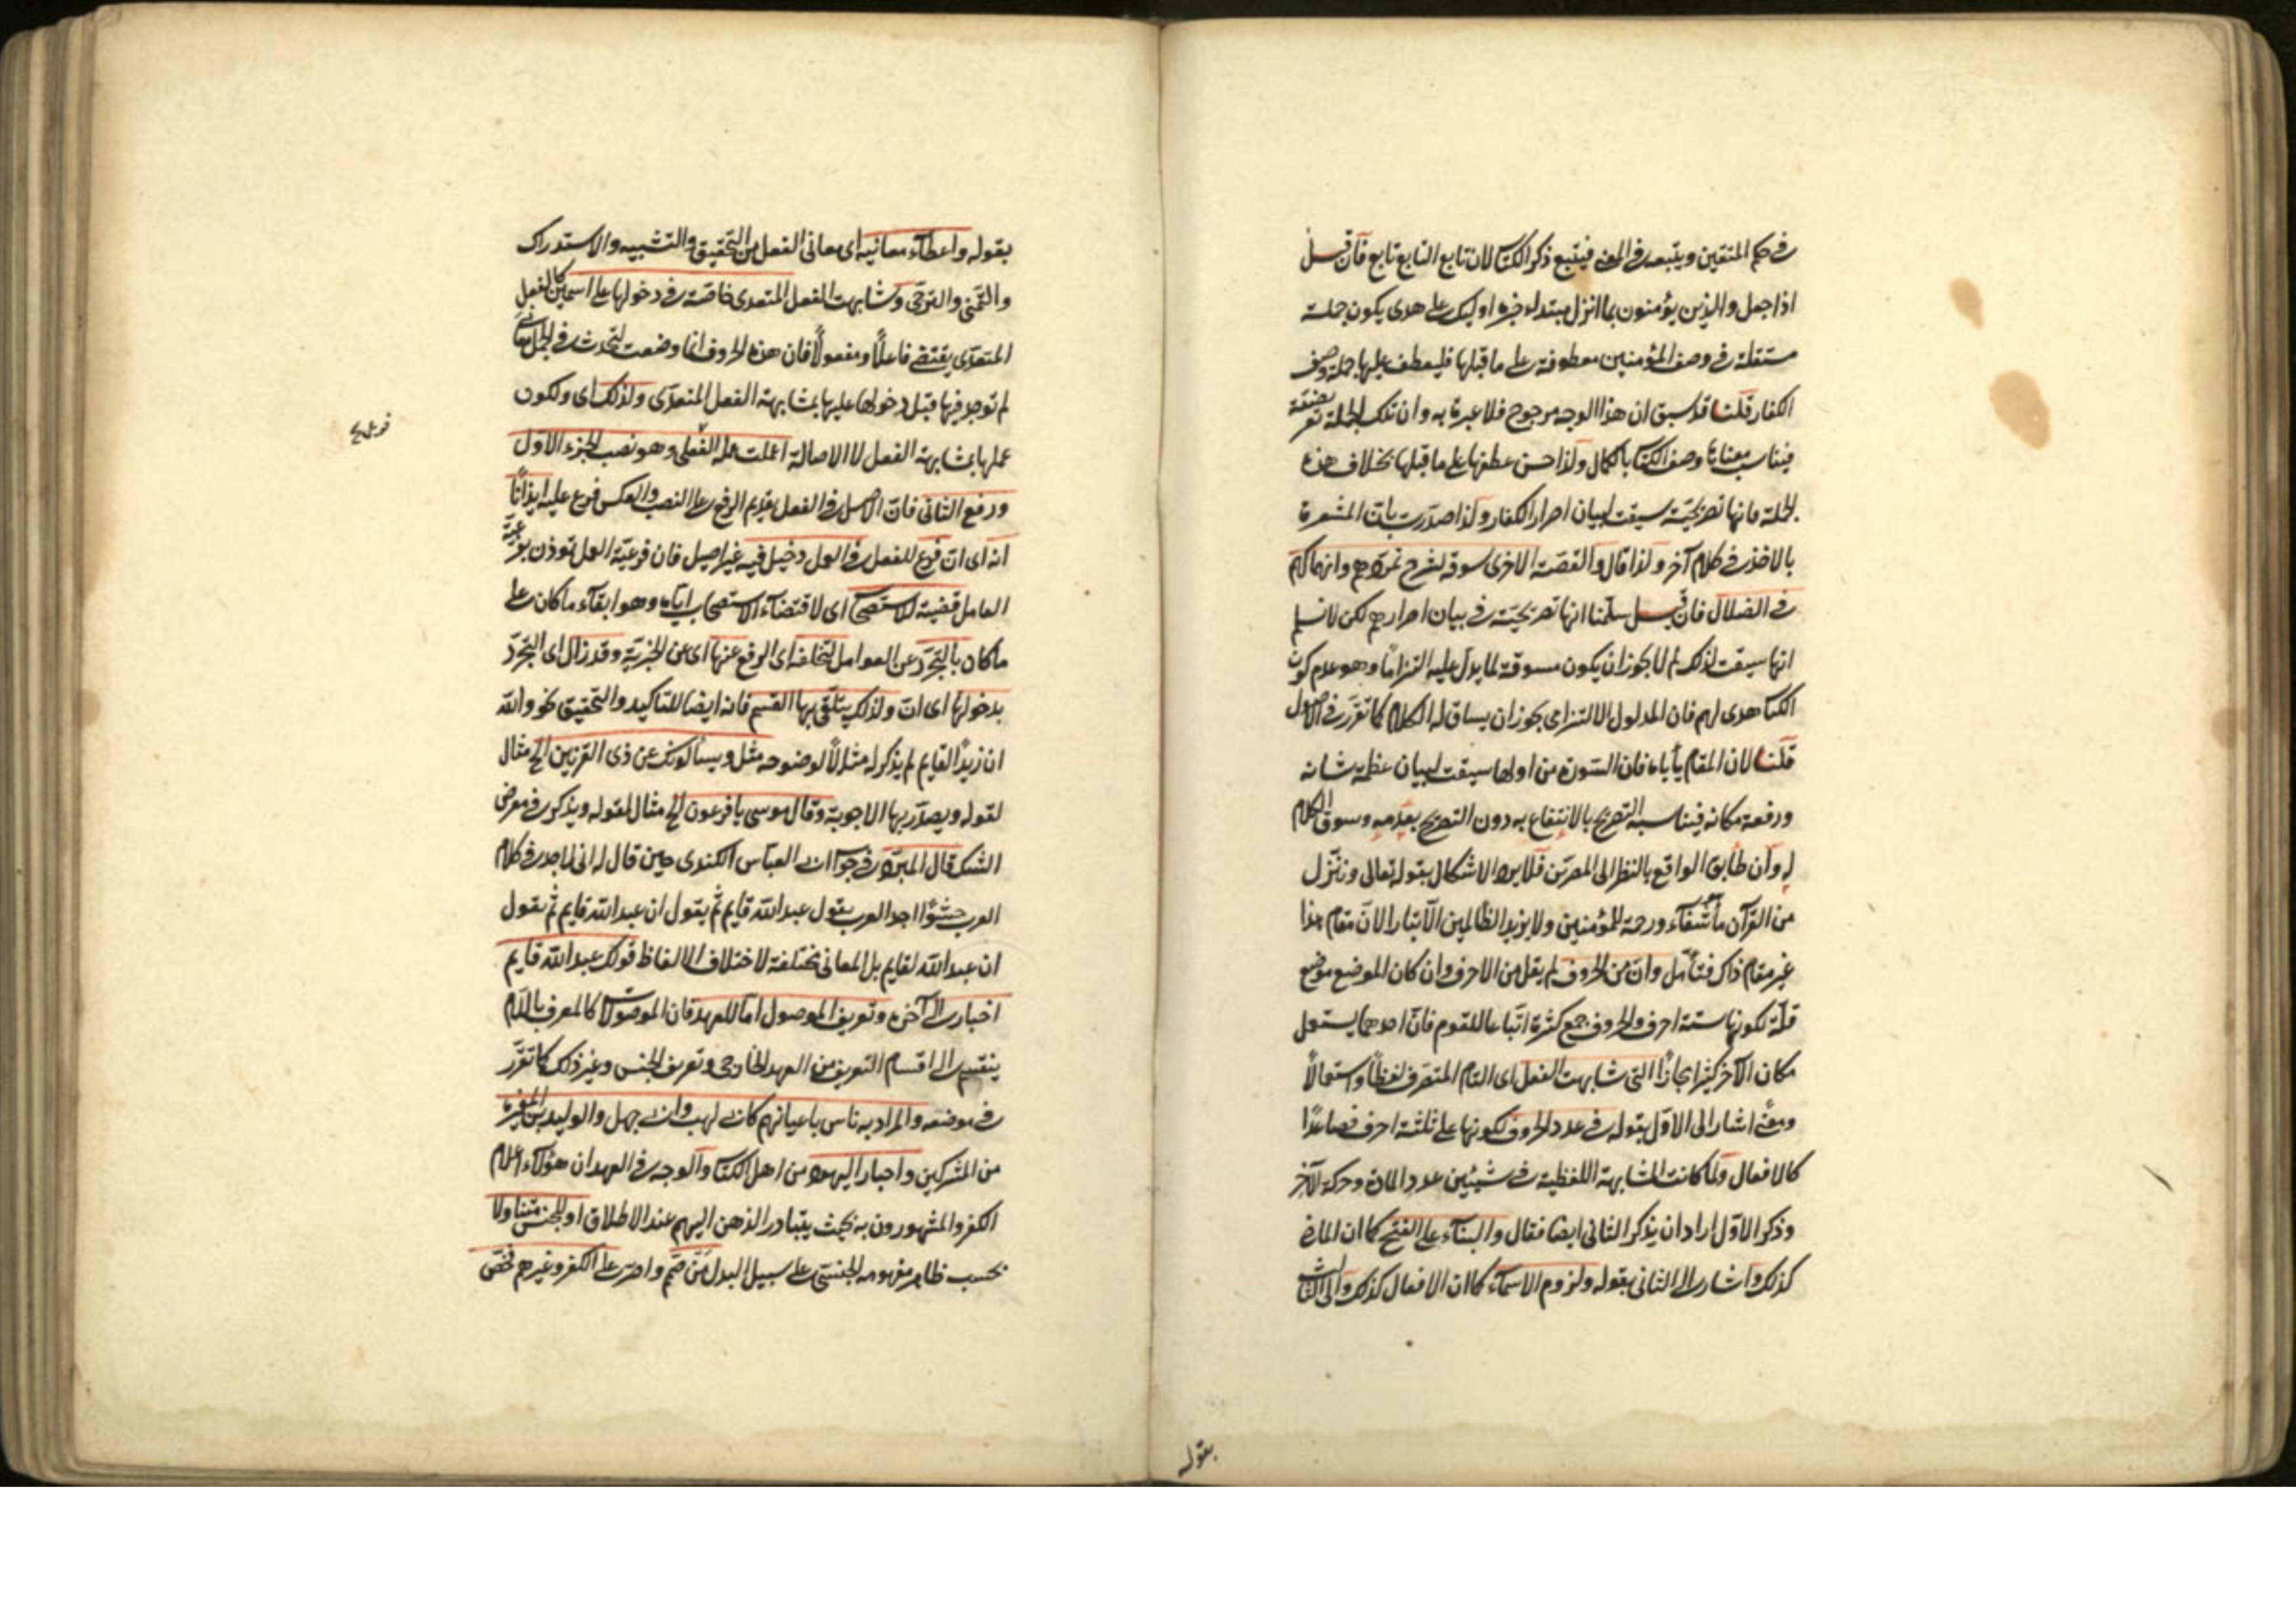 في حكم المتقين ويتبعه في المعنى فيتبع ذكر الكتاب لان تابع التابع تابع فان قيل
اذا جعل والذين يؤمنون بما انزل مبتداء خبره اوليك على هدى يكون جملة
مستقلة في وصف المؤمنين معطوفة على ما قبلها فليعطف عليها جملة وصف
الكفار قلنا قد سبق ان هذا الوجه مرجوح فلا عبرة به وان تلك الجملة تعريضية
فيناسب معناها وصف الكتاب بالكمال ولذا حسن عطفها على ما قبلها بخلاف هذه
الجملة فانها تصريحية سيقت لبيان اصرار الكفار ولذا صدرت بانّ المشعرة
بالاخذ في كلام آخر ولذا قال والقصة الاخرى سوقة لشرح تمردهم وانهماكهم
في الضلال فان قيل سلمنا انها تصريحية في بيان اصرارهم لكن لا نسلم
انها سيقت لذلك لم لا يجوز ان يكون مسوقة لما يدل عليه التزاما وهو عدم كون
الكتاب هدى لهم فان المدلول الالتزامى يجوز ان يساق له الكلام كما تقرر في الاصول
قلنا لان المقام يأباه فان السورة من اولها سيقت لبيان عظمة شانه
ورفعة مكانه فيناسبه التصريح بالانتفاع به دون التصريح بعدمه وسوق الكلام
له وان طابق الواقع بالنظر الى المصرين فلا يرد الاشكال بقوله تعالى وننزل
من القرآن ما هو شفآء ورحمة للمؤمنين ولا يزيد الظالمين الّا تبارا لانّ مقام هذا
غير مقام ذاك فتأمّل وان من الحروف لم يقل من الاحرف وان كان الموضع موضع
قلّة لكونها ستة احرف والحروف جمع كثرة اتّباعا للقوم فانّ احدهما يستعمل
مكان الآخر كثيرا مجازا التي شابهت الفعل اى التام المتصرف لفظاً واستعمالاً
ومعنًى اشار الى الاوّل بقوله في عدد الحروف لكونها على ثلثة احرف فصاعدًا
كالافعال ولمّا كانت المشابهة اللفظية في شيئين عدد المادة وحركة الآخر
وذكر الاوّل اراد ان يذكر الثانى ايضا فقال والبنآء على الفتح كما ان الماضى
كذلك واشار الى الثانى بقوله ولزوم الاسمآء كما ان الافعال كذلك والى الثالث
بقوله
بقوله واعطآء معانيه اى معانى الفعل من التحقيق والتشبيه والاستدراك
والتمنى والترجى وشابهت الفعل المتعدى خاصّة في دخولها على اسمين كالفعل
المتعدّى يقتضى فاعلًا ومفعولًا فان هذه الحروف انما وضعت لتحدث في الجمل معانى
لم توجد فيها قبل دخولها عليها بمشابهة الفعل المتعدّى ولذلك اى ولكون
عملها بمشابهة الفعل لا الاصالة اعملت عمله الفعلى وهو نصب الجزء الاوّل
ورفع الثانى فانّ الاصل في الفعل تقديم الرفع على النصب والعكس فرع عليه ايذانًا
انه اى انّ فرع للفعل في العمل دخيل فيه غير اصيل فان فرعيّة العمل توذن بفرعية
العامل قضية للاستصحاب اى لاقتضآء الاستصحاب اياه وهو ابقآء ما كان على
ما كان بالتجرّد عن العوامل لتخلفه اى الرفع عنها اى عن الخبرية وقد زال اى التجرّد
بدخولها اى انّ ولذلك يتلقّى بها القسم فانه ايضا للتاكيد والتحقيق نحو والله
ان زيدًا لقايم لم يذكر له مثالًا لوضوحه مثل ويسألونك عن ذى القرنين الخ مثال
لقوله ويصدّر بها الاجوبة وقال موسى يا فرعون الخ مثال لقوله ويذكر في معرض
الشك قال المبرّد في جواب ابى العباس الكندى حين قال له انى لاجد في كلام
العرب حشوًا اجد العرب يقول عبد الله قايم ثم يقول ان عبد الله قايم ثم يقول
ان عبد الله لقايم بل المعانى مختلفة لاختلاف الالفاظ قولك عبد الله قايم
اخبار الى آخره وتعريف الموصول امّا للعهد فان الموصول كالمعرف باللام
ينقسم الى اقسام التعريف من العهد الخارجى وتعريف الجنس وغير ذلك كما تقرّر
في موضعه والمراد به ناس باعيانهم كابى لهب وابى جهل والوليد بن المغيرة
من المشركين واحبار اليهود من اهل الكتاب والوجه في العهد ان هؤلاء اعلام
الكفر والمشهورون به بحيث يتبادر الذهن اليهم عند الاطلاق او للجنس متناولا
بحسب ظاهر مفهومه الجنسى على سبيل البدل مَن صمّم واصرّ على الكفر وغيرهم فخصّ